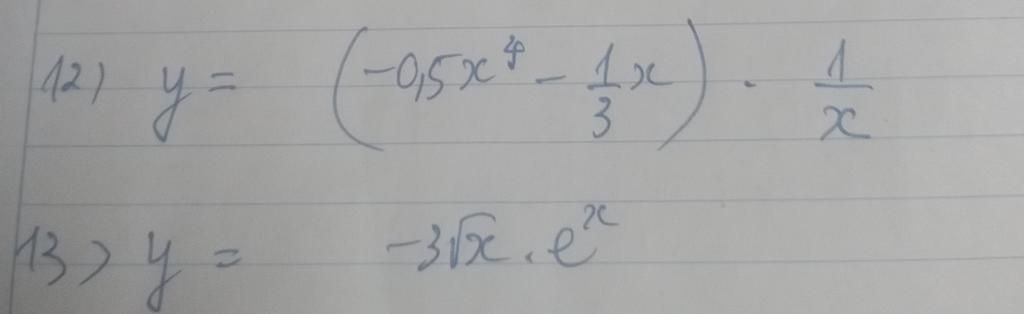 12) y = (-0,5x⁴ - 1/3 x) · 1/x
13) y = -3√x · eˣ